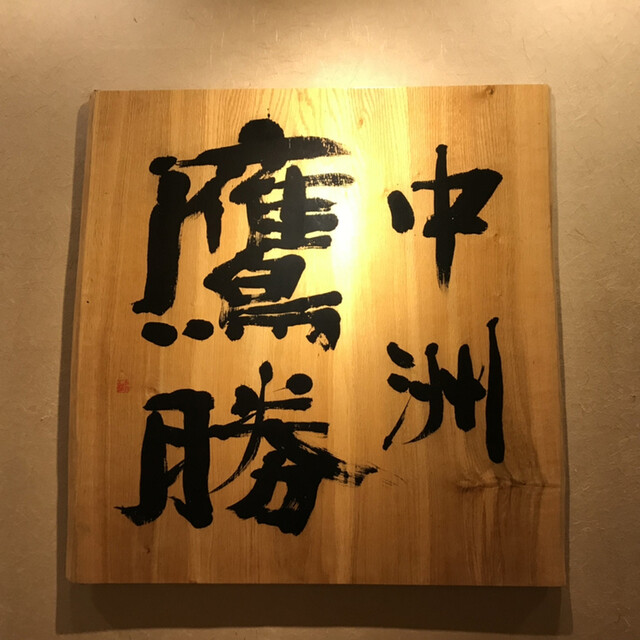 中洲
鷹勝